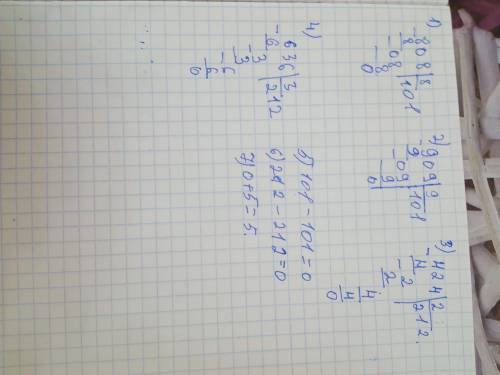 1) 808|8
-8 |101
-08
8
0
2) 909|9
-9 |101
-09
9
0
3) 424|2
-4 |212.
-2
2
4
4
0
4) 636|3
-6 |212
-3
3
-6
6
0
5) 101 - 101 = 0
6) 212 - 212 = 0
7) 0+5=5.